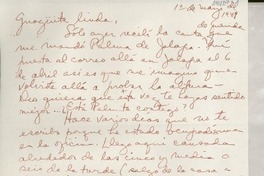 12 de mayo de
1949
Guagüita linda,
Sólo ayer recibí la carta que
me mandó Palma de Jalapa. Fué
puesta al correo allá en Jalapa el 6
de abril así es que me imagino que
volverte allá a probar la altura
Creo quizá esta vez te hayas sentido
mejor. ¿Está Palmita contigo?
Hace varios días que no te
escribo porque he estado ocupadísima
en la oficina. Llego aquí cansada
alrededor de las cinco y media o
seis de la tarde (salgo de la casa a